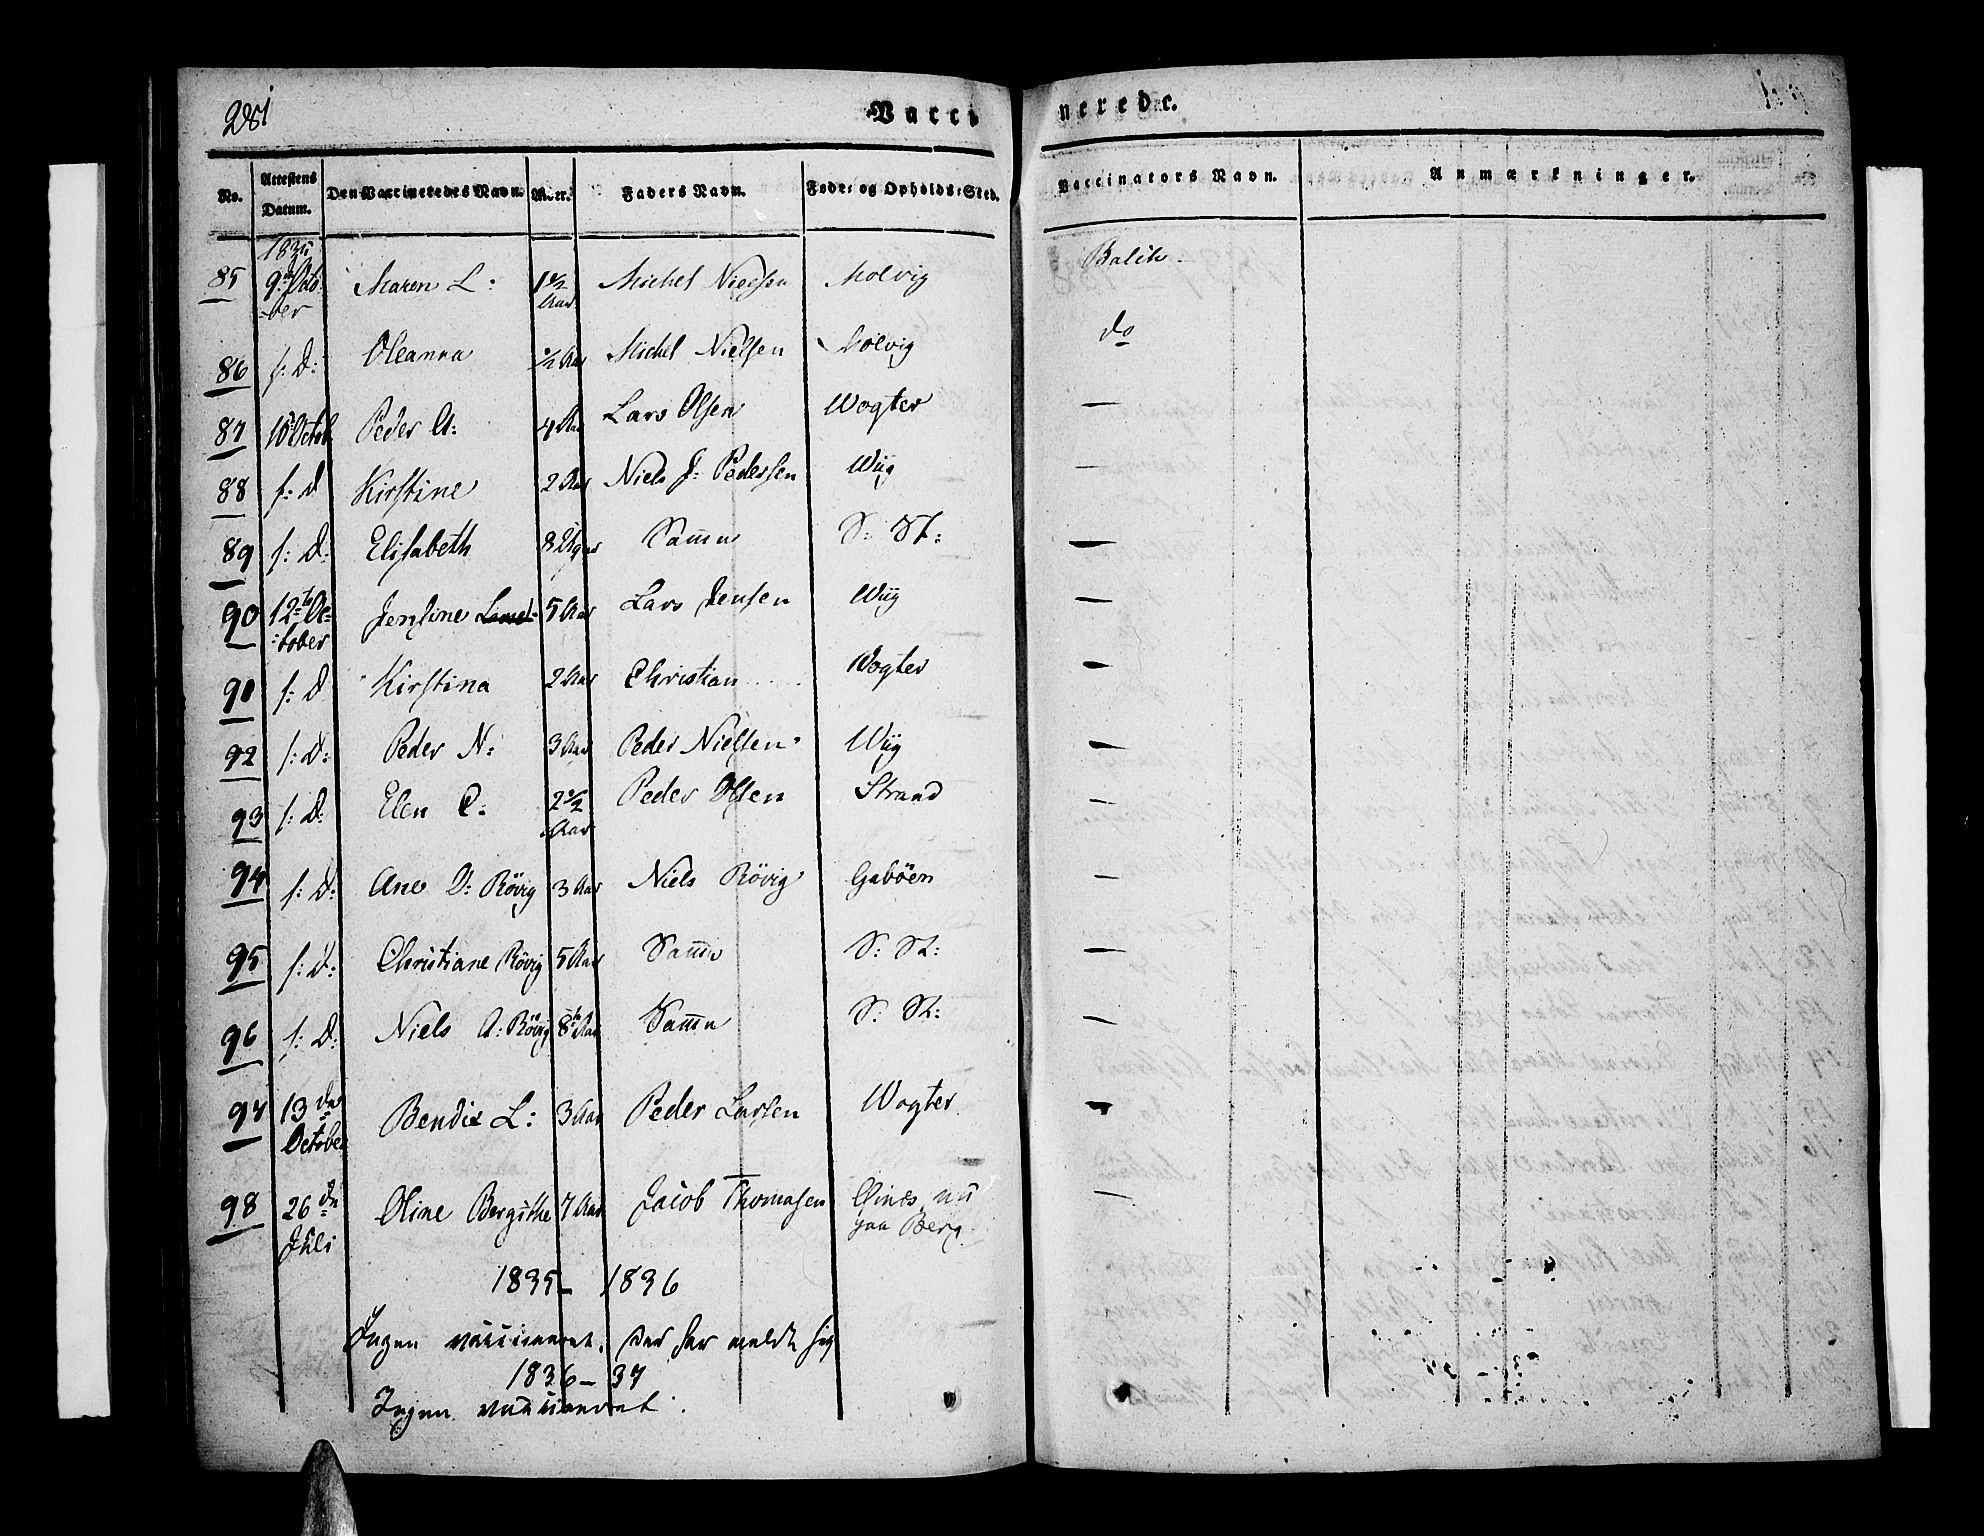 281
Vaccinerede.
No. Attestens Datum. Den Vaccineredes Navn. Alder. Faders Navn. Føde- og Opholds-Sted. Vaccinators Navn. Anmærkninger.
85 9de October Maren L: 1 1/2 Aar Michel Nielsen Molvig Balch.
86 s: D: Oleanna 1/2 Aar Michel Nielsen Molvig do
87 Octob. Peder A: 4 Aar Lars Olsen Wogter —
88 s: D Kirstine 2 Aar Niels J: Pedersen Wiig —
89 s: D: Elisabeth 8 Samme S: St: —
90 12te October Jensine 5 Aar Lars Jensen Wiig —
91 s: D Kirstina 2 Aar Christian Wogter —
92 s: D: Peder N: 3 Aar Peder Nielsen Wiig —
93 s: D: Elen C: 2 1/2 Aar Peder Olsen Strand —
94 s: D: Ane D: Rövig 3 Aar Niels Rövig Gaböen —
95 s: D: Christiane Rövig 5 Aar Samme S: St: —
96 s: D: Niels A: Rövig 8 Aar Samme S: St: —
97 13de October Bendix L: 3 Aar Peder Larsen Wogter —
98 26de Juli Oline Bergithe 7 Aar Jacob Thomasen nu paa Berg. —
1835 – 1836
Ingen vaccineret, der har meldt sig
1836 – 37
Ingen vaccineret.